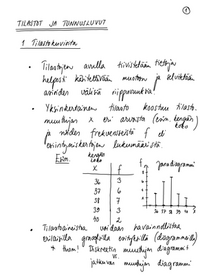 ①
TILASTOT JA TUNNUSLUVUT
1 Tilastokuvioita
• Tilastojen avulla tiivistetään tietoja
helposti käsiteltävään muotoon ja selvitetään
asioiden välisiä riippuvuuksia
• Yksinkertainen tilasto koostuu tilasto-
muuttujan x eri arvoista (esim. kengän koko)
ja niiden frekvensseistä f eli
esiintymiskertojen lukumääristä.
Esim. kengän koko
x f
36 3
37 6
38 7
39 3
40 2
f pylväsdiagrammi
36 37 38 39 40 x
• Tilastoaineistoa voidaan havainnollistaa
erilaisilla graafisilla esityksillä (diagrammeilla)
* huom! Diskreetin muuttujan diagrammi
vs.
jatkuvan muuttujan diagrammi